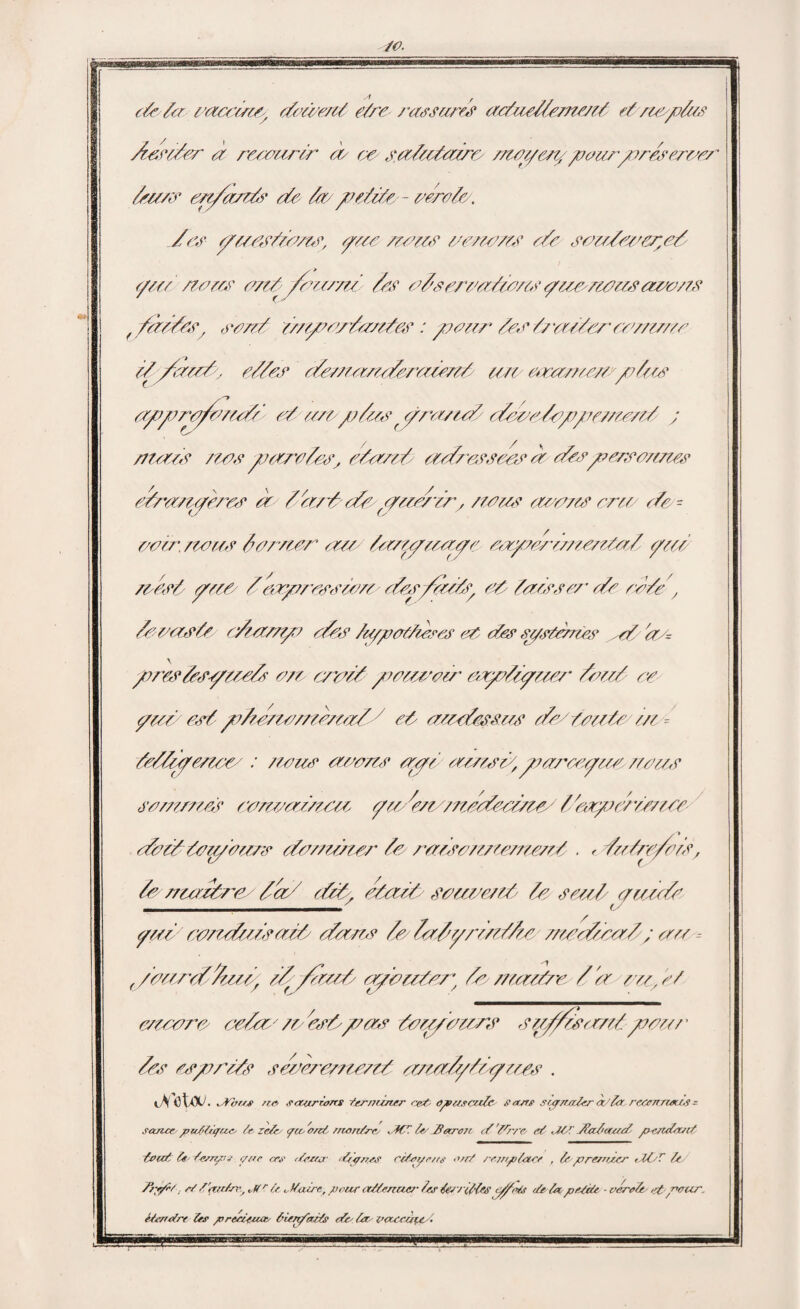 10.
de la vaccine, doivent etre rassurés actuellement et ne plus
hésiter à recourir à ce salutaire moyen, pour préserver
leurs enfants de la petite-vérole.
Les questions, que nous venons de soulever, et
qui nous ont fourni les observations que nous avons
faites, sont importantes : pour les traiter comme
il faut, elles demanderaient un examen plus
approfondi et un plus grand développement ;
mais nos paroles, étant adressées à des personnes
etrangères à l'art de guérir, nous avons cru de=
voir nous borner au language expérimental qui
n'est que l'expression des faits, et laisser de côté,
le vaste champ des hypothèses et des systèmes d'a=
près les-quels on croit pouvoir expliquer tout ce
qui est phénoménal et audessus de toute in=
telligence : nous avons agi ainsi, parceque nous
sommes convaincu qu'en médecine l'expérience
doit toujours dominer le raisonnement. Autrefois,
le maître l'a dit, était souvent le seul guide
qui conduisait dans le labyrinthe médical ; au=
jourd'hui, il faut ajouter, le maitre l'a vu, et
encore cela n'est pas toujours suffisant pour
les esprits sévèrement analytiques.
Nota. Nous ne saurions terminer cet opuscule sans signaler à la reconnais=
sance publique le zèle qu'ont montré Mr. le Baron d'Yrre et Mr Rabaud pendant
tout le temps que ces deux dignes citoyens ont remplacé, le premier Mr le
Préfet, et l'autre, Mr le Maire, pour atténuer les terribles effets de la petite-vérole et pour
étendre les précieux bienfaits de la vaccine.